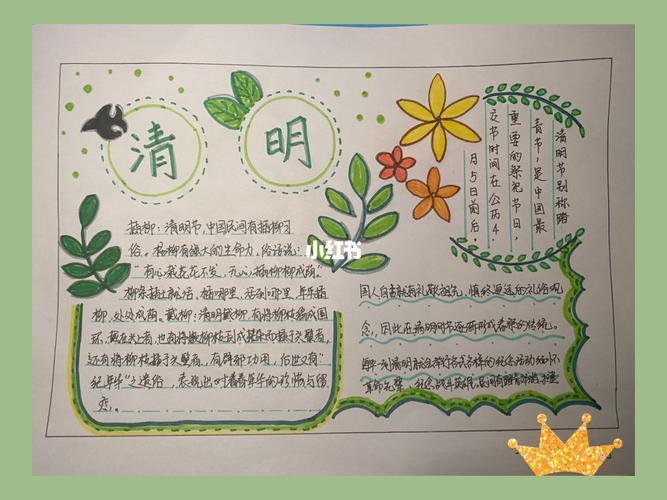 清 明
插柳:清明节,中国民间有插柳习
俗。杨柳有强大的生命力,俗话说:
"有心栽花花不发,无心插柳柳成荫。"
柳条插土就活,插哪里,活到哪里,年年插
柳,处处成荫。戴柳:清明戴柳,有将柳枝编成圆
环,戴在头上者,也有将嫩柳枝
还有将柳枝插于头髻者,有辟邪功用,后世又有"
纪年华"之遗俗,表现出对着青年华的珍惜与留
恋。
清明节别称踏
青节,是中国最
重要的祭祀节日,
交节时间在公历4
月5日前后
小红书
国人自古就有礼敬祖先,慎终追远的礼俗观
念,因此在清明节逐渐形成春祭的传统。
每年一到清明就会举行各式各样的纪念活动
革命先辈,纪念战斗英雄,民间有